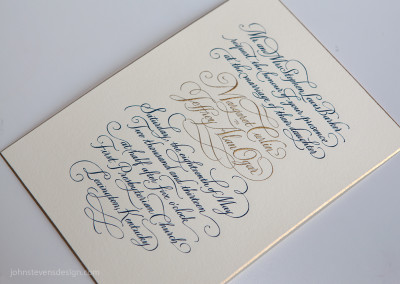 Mr. and Mrs. Stephen Lucas Barker
request the honour of your presence
at the marriage of their daughter
Jeffrey Alan Oger
Saturday, the eighteenth of May
Two thousand and thirteen
at half after five o'clock
First Presbyterian Church
Lexington, Kentucky
johnstevensdesign.com